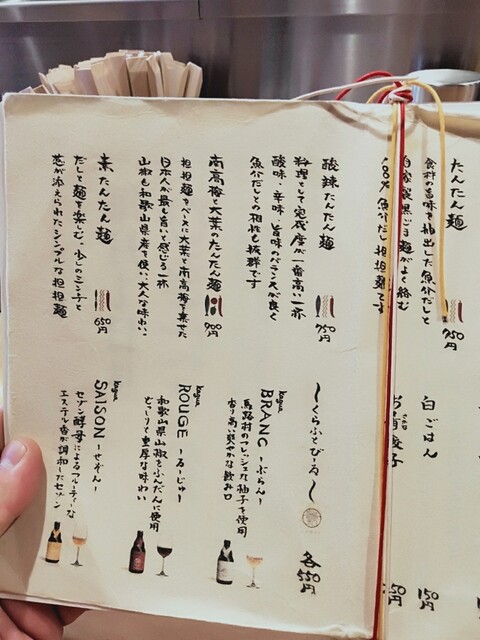 たんたん麺
食材の旨味を抽出した魚介だしと
自家製黒ごま麺がよく絡む
100% 魚介だし担担麺です
750円
酸辣たんたん麺
料理として完成度が一番高い一杯
酸味・辛味・旨味のバランスが良く
魚介だしとの相性も抜群です
750円
南高梅と大葉のたんたん麺
担担麺をベースに大葉と南高梅を乗せた
日本人が最も旨いと感じる一杯
山椒も和歌山県産を使い大人な味わい
900円
素たんたん麺
だしと麺を楽しむ、少しのミンチと
葱が添えられたシンプルな担担麺
650円
白ごはん
150円
50円
〜くらふとびーる〜
各550円
kagua
BLANC -ぶらん-
馬路村のフレッシュな柚子を使用
香り高い爽やかな飲み口
kagua
ROUGE -るーじゅ-
和歌山県山椒をふんだんに使用
どっしりと重厚な味わい
kagua
SAISON -せぞん-
セゾン酵母によるフルーティーな
エステル香が調和したセゾン